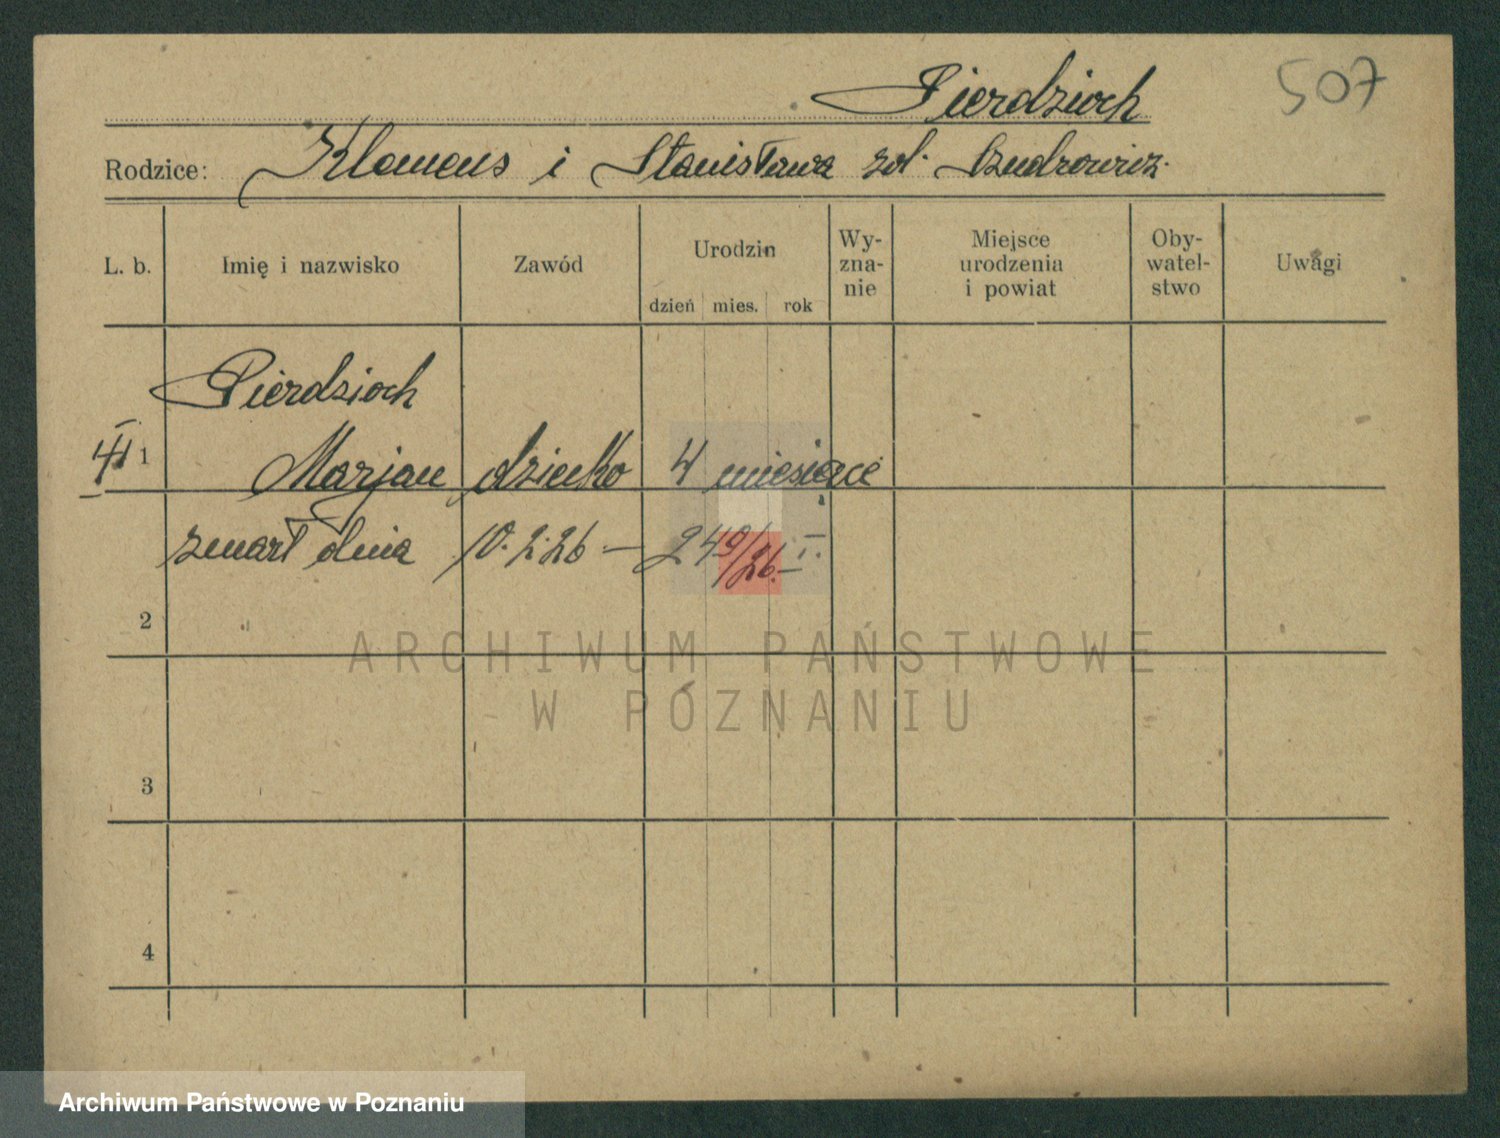 Pierdzioch
507
Rodzice: Klemens i Stanisława zd.
L. b. Imię i nazwisko Zawód Urodzin dzień mies. rok Wy-zna-nie Miejsce urodzenia i powiat Oby-watel-stwo Uwagi
Pierdzioch
1 Marjan dziecko 4 miesiące
zmarł dnia 10.2.26 — 249/26. I.
2
ARCHIWUM PAŃSTWOWE
W POZNANIU
3
4
Archiwum Państwowe w Poznaniu